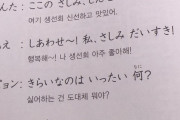 んた：ここの さしみ、し
여기 생선회 신선하고 맛있어.
え：しあわせ〜! 私、さしみ だいすき!
행복해~! 나 생선회 아주 좋아해!
ョン：きらいなのは いったい 何?
なに
싫어하는 건 도대체 뭐야?